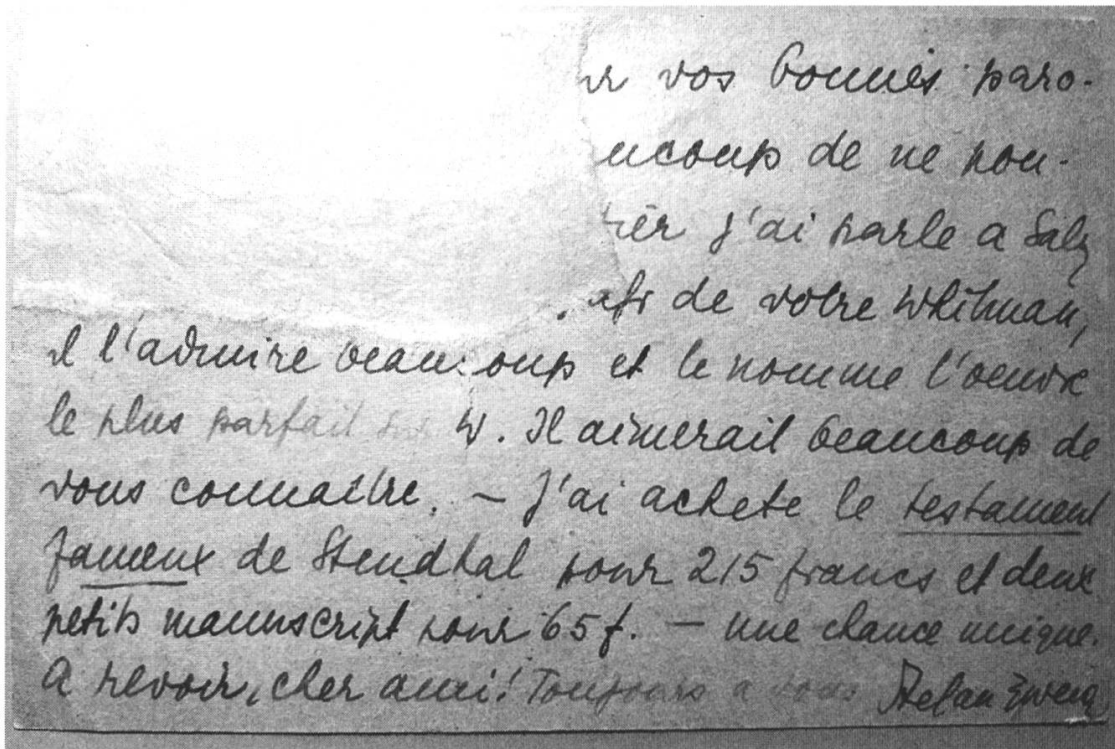 vos bonnes paro-
ucoup de ne pou-
j'ai parle a Salz
de votre Whitman,
il l'admire beaucoup et le nomme l'oeuvre
le plus parfait sur W. Il aimerait beaucoup de
vous connaitre. – J'ai achete le testament
fameux de Stendhal pour 215 francs et deux
petits manuscript pour 65 f. – une chance unique.
A revoir, cher ami! Toujours a vous Stefan Zweig